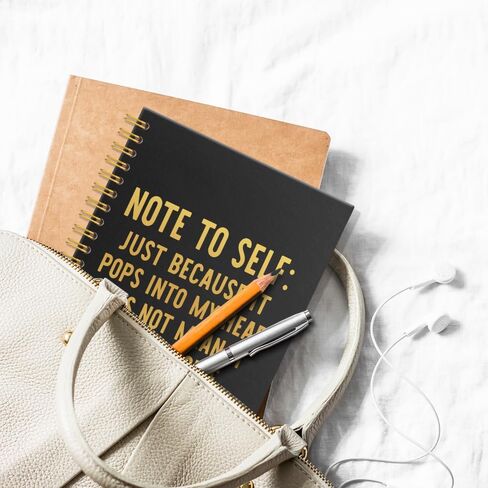 NOTE TO SELF:
JUST BECAUSE IT
POPS INTO MY HEAD
NOT MEAN